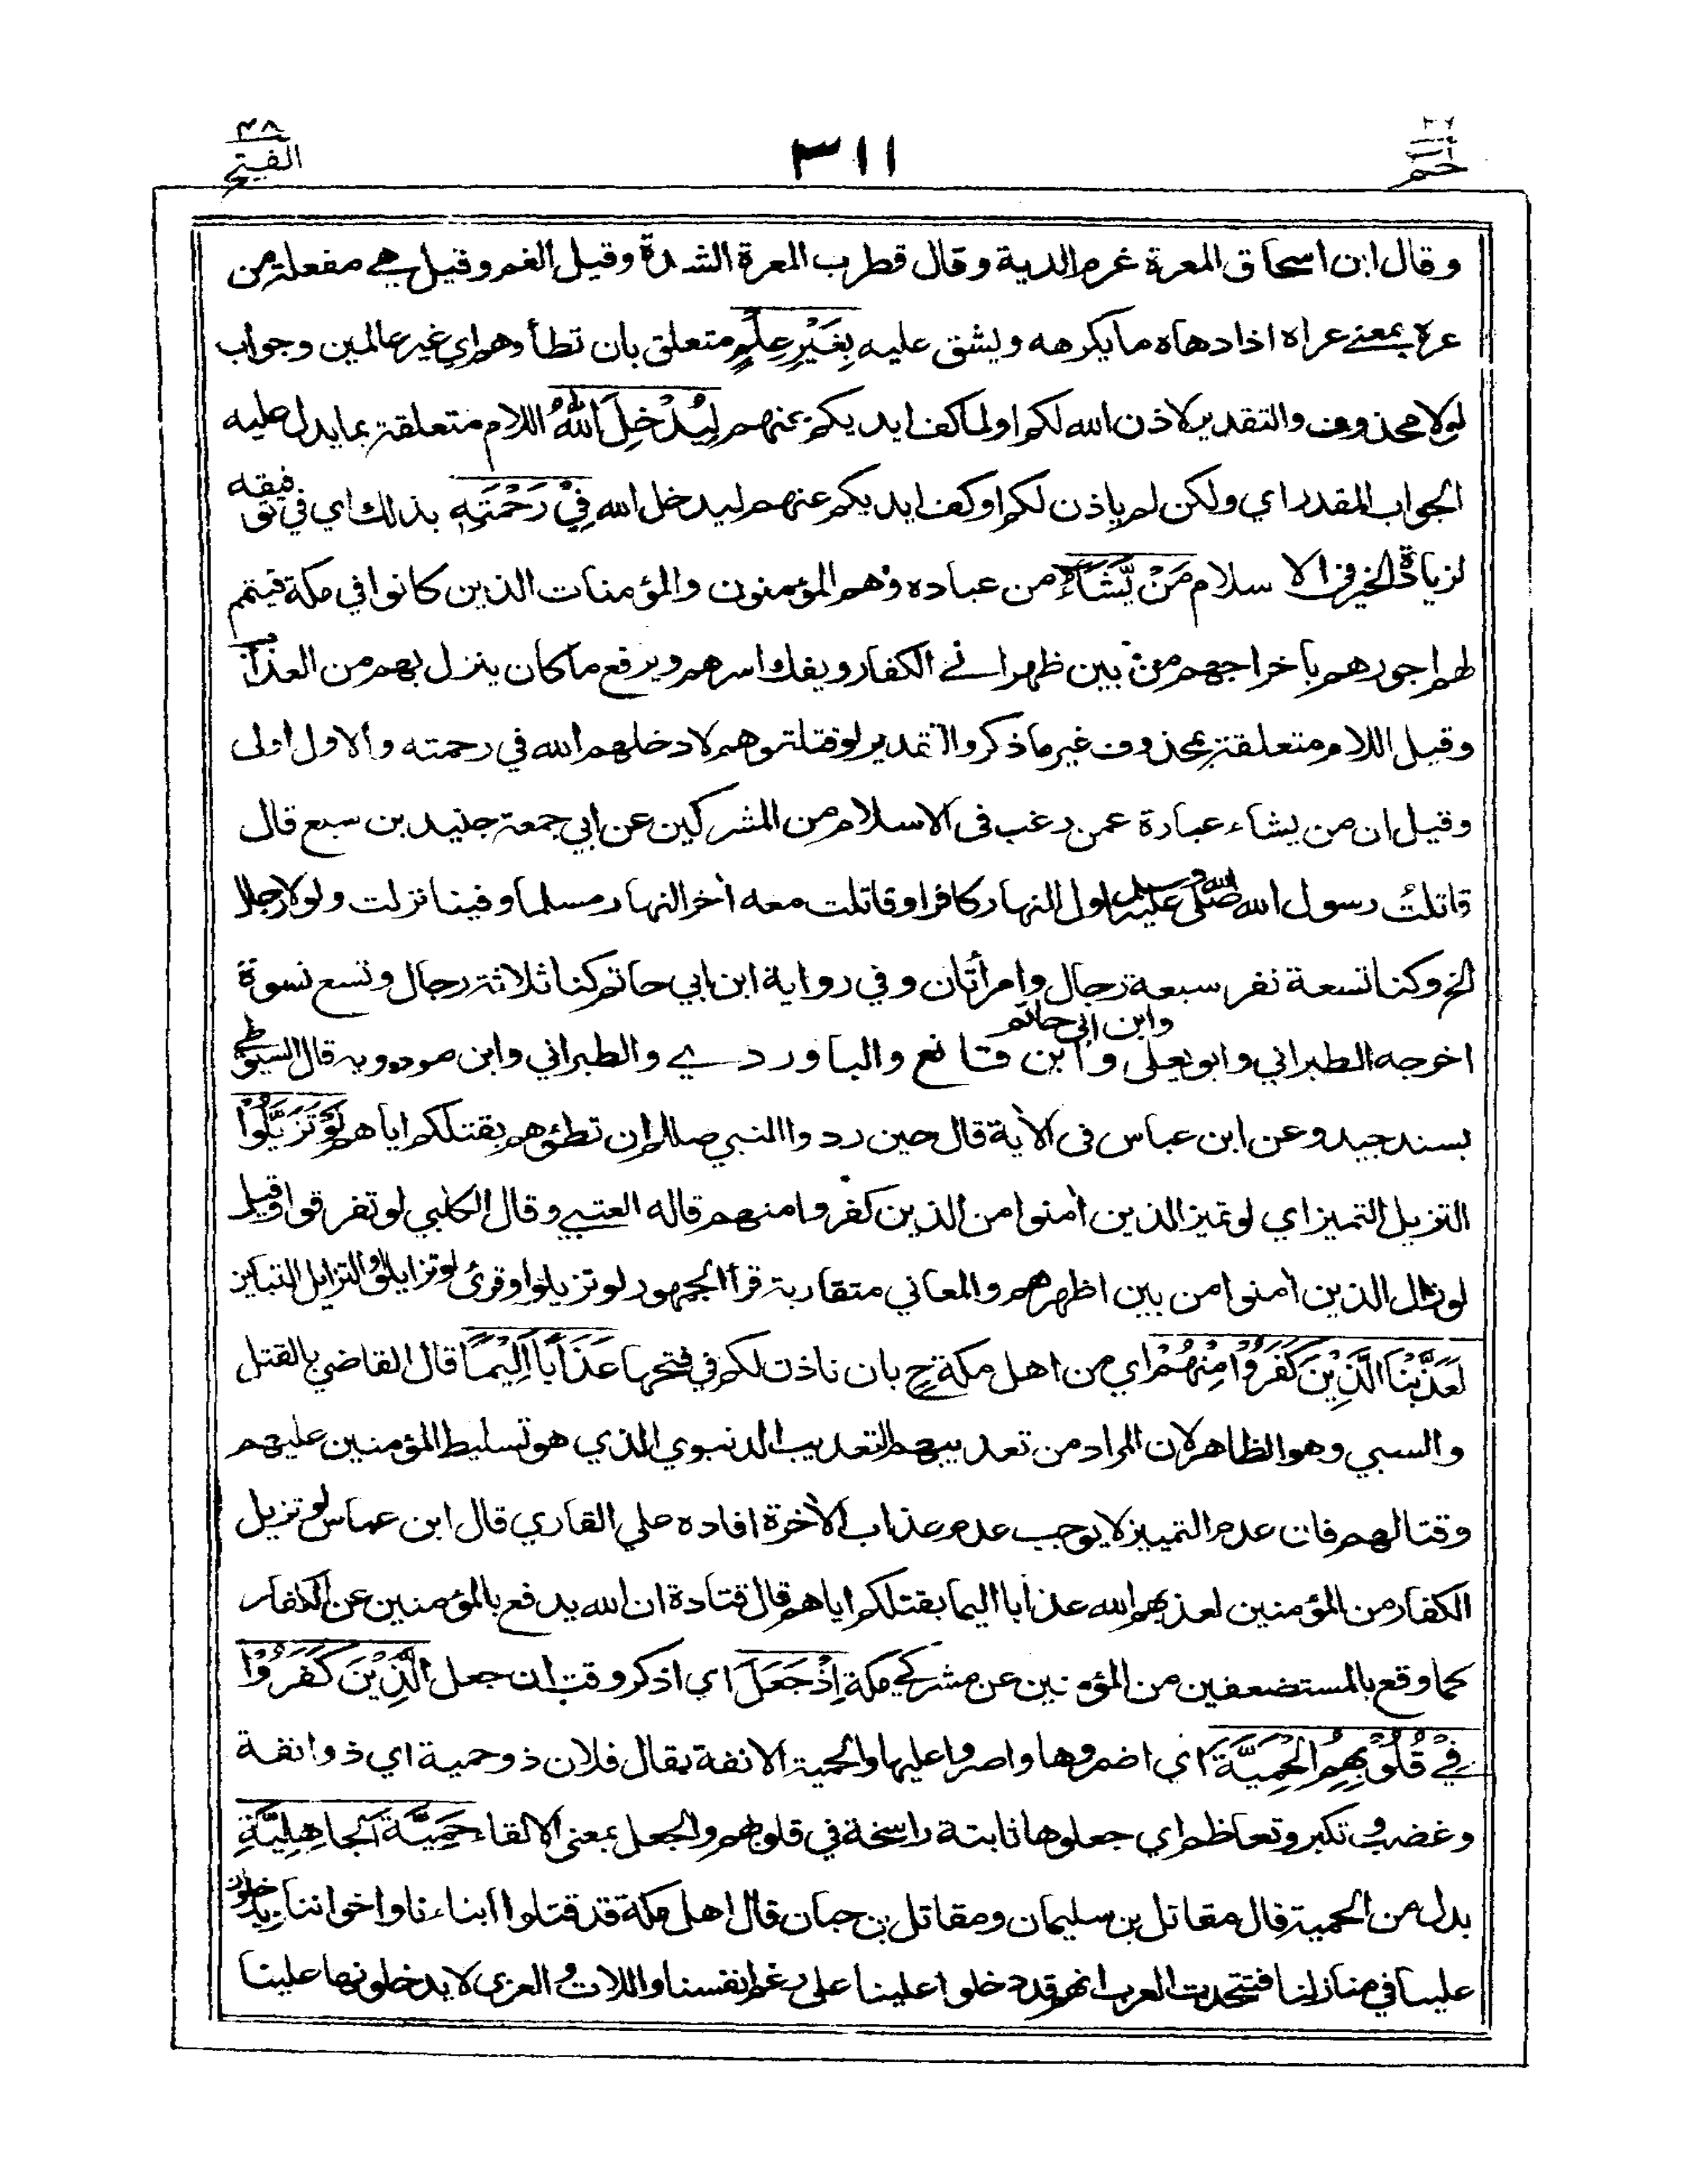 حم
٣١١
٤٨
الفتح
وقال ابن اسحاق المعرة غرم الدية وقال قطرب المعرة الشدة وقيل الغم وقيل هي مفعلة من
عره بمعنى عراه اذا دهاه ما يكرهه ويشق عليه بِغَيْرِ عِلْمٍ متعلق بان تطأوهم اي غير عالمين وجواب
لولا محذوف والتقدير لاذن الله لكم او لما كف ايديكم عنهم لِيُدْخِلَ اللهُ اللام متعلقة بما يدل عليه
الجواب المقدر اي ولكن لم ياذن لكم او كف ايديكم عنهم ليدخل الله فِيْ رَحْمَتِهٖ بذلك اي في توفيقه
لزيادة الخير في الاسلام مَنْ يَّشَآءُ من عباده وهم المؤمنون والمؤمنات الذين كانوا في مكة فيتم
لهم اجورهم باخراجهم من بين ظهراني الكفار ويفك اسرهم ويرفع ما كان ينزل بهم من العذاب
وقيل اللام متعلقة بمحذوف غير ما ذكر والتقدير لو قتلتموهم لادخلهم الله في رحمته والاول اولى
وقيل ان من يشاء عبارة عمن رغب في الاسلام من المشركين عن ابي جمعة جنيد بن سبع قال
قاتلتُ رسول الله صلى الله عليه وسلم اول النهار كافرا وقاتلت معه أخر النهار مسلما وفينا نزلت ولولا رجال
الخ وكنا تسعة نفر سبعة رجال وامرأتان وفي رواية ابن ابي حاتم كنا ثلاثة رجال وتسع نسوة
اخرجه الطبراني وابو يعلى وابن ابي حاتم وابن قانع والباوردي والطبراني وابن مردويه قال السيوطي
بسند جيد وعن ابن عباس في الأية قال حين ردوا النبي صللم ان تطئوهم بقتلكم اياهم لَوْ تَزَيَّلُوْا
التزيل التميز اي لو تميز الذين أمنوا من الذين كفروا منهم قاله العتبي وقال الكلبي لو تفرقوا وقيل
لو زال الذين أمنوا من بين اظهرهم والمعاني متقاربة قرأ الجمهور لو تزيلوا وقرئ لو تزايلوا والتزايل التباين
لَعَذَّبْنَا الَّذِيْنَ كَفَرُوْا مِنْهُمْ اي من اهل مكة ح بان ناذن لكم في فتحها عَذَابًا اَلِيْمًا قال القاضي بالقتل
والسبي وهو الظاهر لان المراد من تعذيبهم التعذيب الدنيوي الذي هو تسليط المؤمنين عليهم
وقتالهم فان عدم التمييز لا يوجب عدم عذاب الأخرة افاده علي القاري قال ابن عباس لو تزيل
الكفار من المؤمنين لعذبهم الله عذابا اليما بقتلكم اياهم قال قتادة ان الله يدفع بالمؤمنين عن الكفار
كما وقع بالمستضعفين من المؤمنين عن مشركي مكة اِذْ جَعَلَ اي اذكر وقت ان جعل الَّذِيْنَ كَفَرُوْا
فِيْ قُلُوْبِهِمُ الْحَمِيَّةَ اي اضمروها واصروا عليها والحمية الانفة يقال فلان ذو حمية اي ذو انفة
وغضب وتكبر وتعاظم اي جعلوها ثابتة راسخة في قلوبهم والجعل بمعنى الالقاء حَمِيَّةَ الْجَاهِلِيَّةِ
بدل من الحمية قال مقاتل بن سليمان ومقاتل بن حبان قال اهل مكة قد قتلوا ابناءنا واخواننا ويدخلون
علينا في منازلنا فتتحدث العرب انهم قد دخلوا علينا على رغم انفسنا واللات والعزى لا يدخلونها علينا